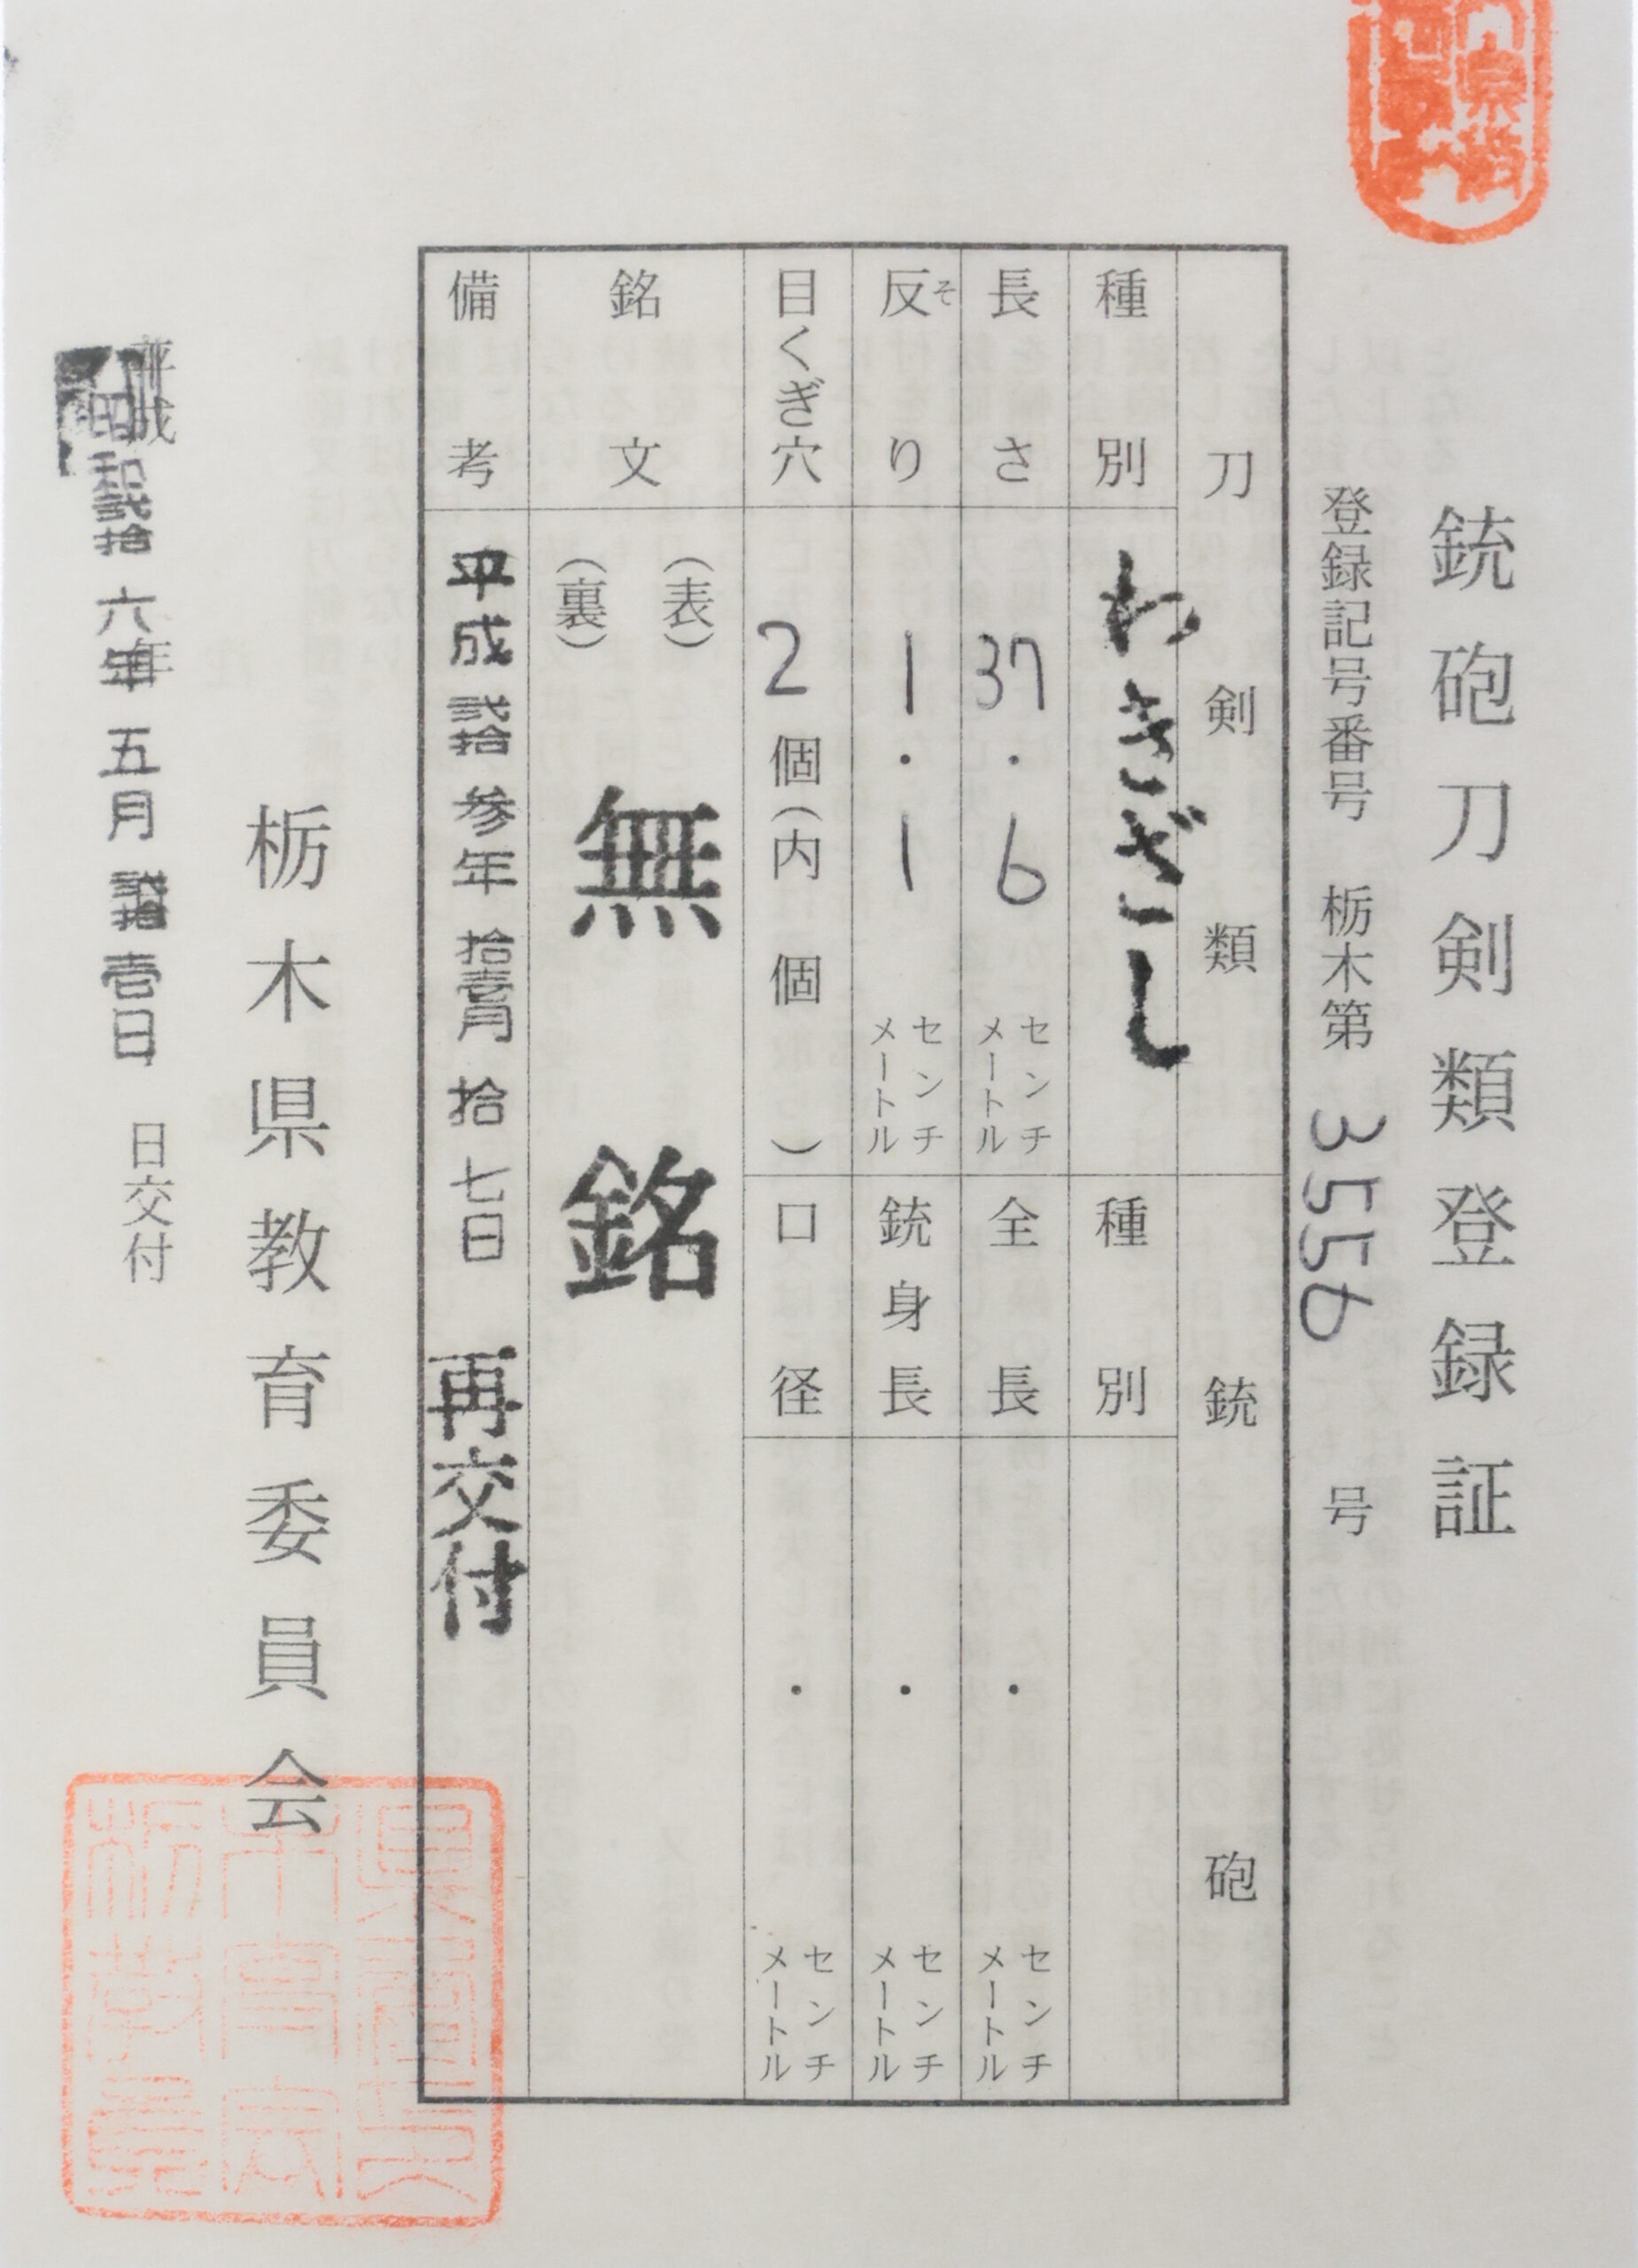 銃砲刀剣類登録証
登録記号番号 栃木第 3556 号
刀剣類
種別 わきざし
長さ 37.6 センチメートル
反り 1.1 センチメートル
そ
目くぎ穴 2個(内 個)
銃砲
種別
全長 ・ センチメートル
銃身長 ・ センチメートル
口径 ・ センチメートル
銘文 (表) 無銘
(裏)
備考 平成弐拾参年拾壱月拾七日 再交付
栃木県教育委員会
平成 年 日交付
昭和弐拾六年五月弐拾壱日